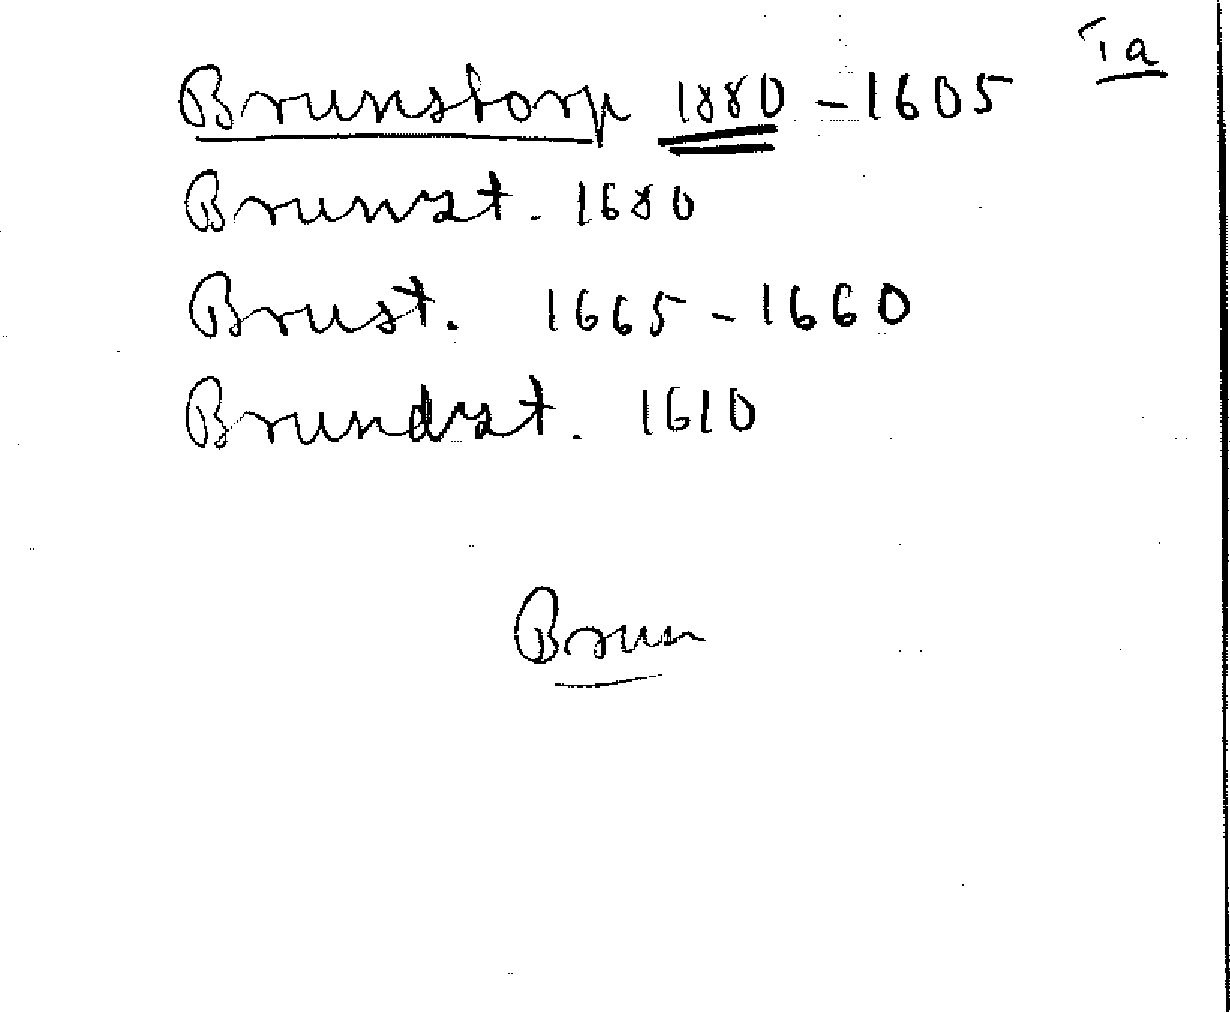 Ta
Brunstorp 1880 - 1605
Brunst. 1680
Brust. 1665 - 1660
Brundst. 1610
Brun